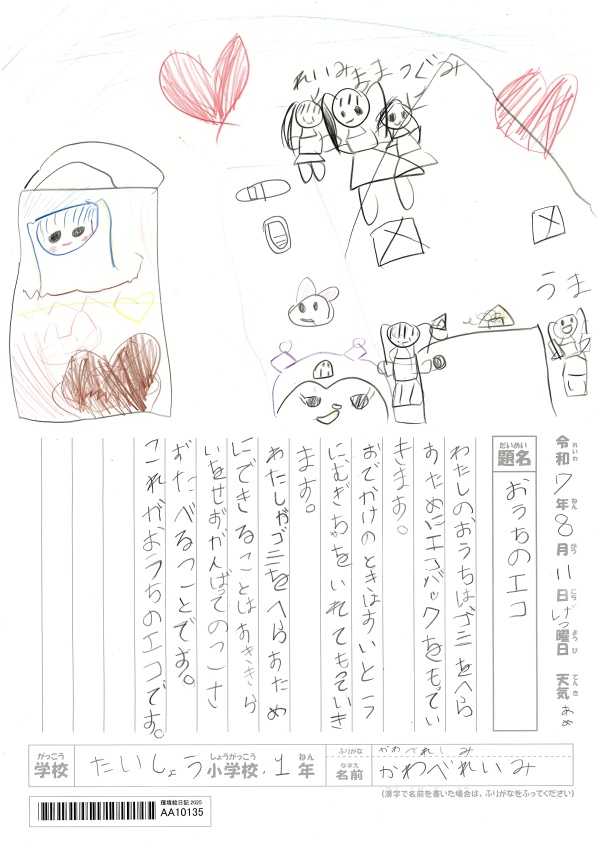 れいみ まま つぐみ
うま
令和7年8月11日 げつ曜日 天気 あめ
れいわ ねん がつ にち ようび てんき
だいめい
題名
おうちのエコ
わたしのおうちはゴミをへら
すためにエコバックをもってい
きます。
おでかけのときはすいとう
にむぎちゃをいれてもっていき
ます。
わたしがゴミをへらすため
にできることはすききら
いをせずがんばってのこさ
ずたべることです。
これがおうちのエコです。
がっこう しょうがっこう ねん
学校 たいしょう小学校 1年
ふりがな かわべれいみ
なまえ
名前 かわべれいみ
(漢字で名前を書いた場合は、ふりがなをふってください)
環境絵日記 2025
AA10135